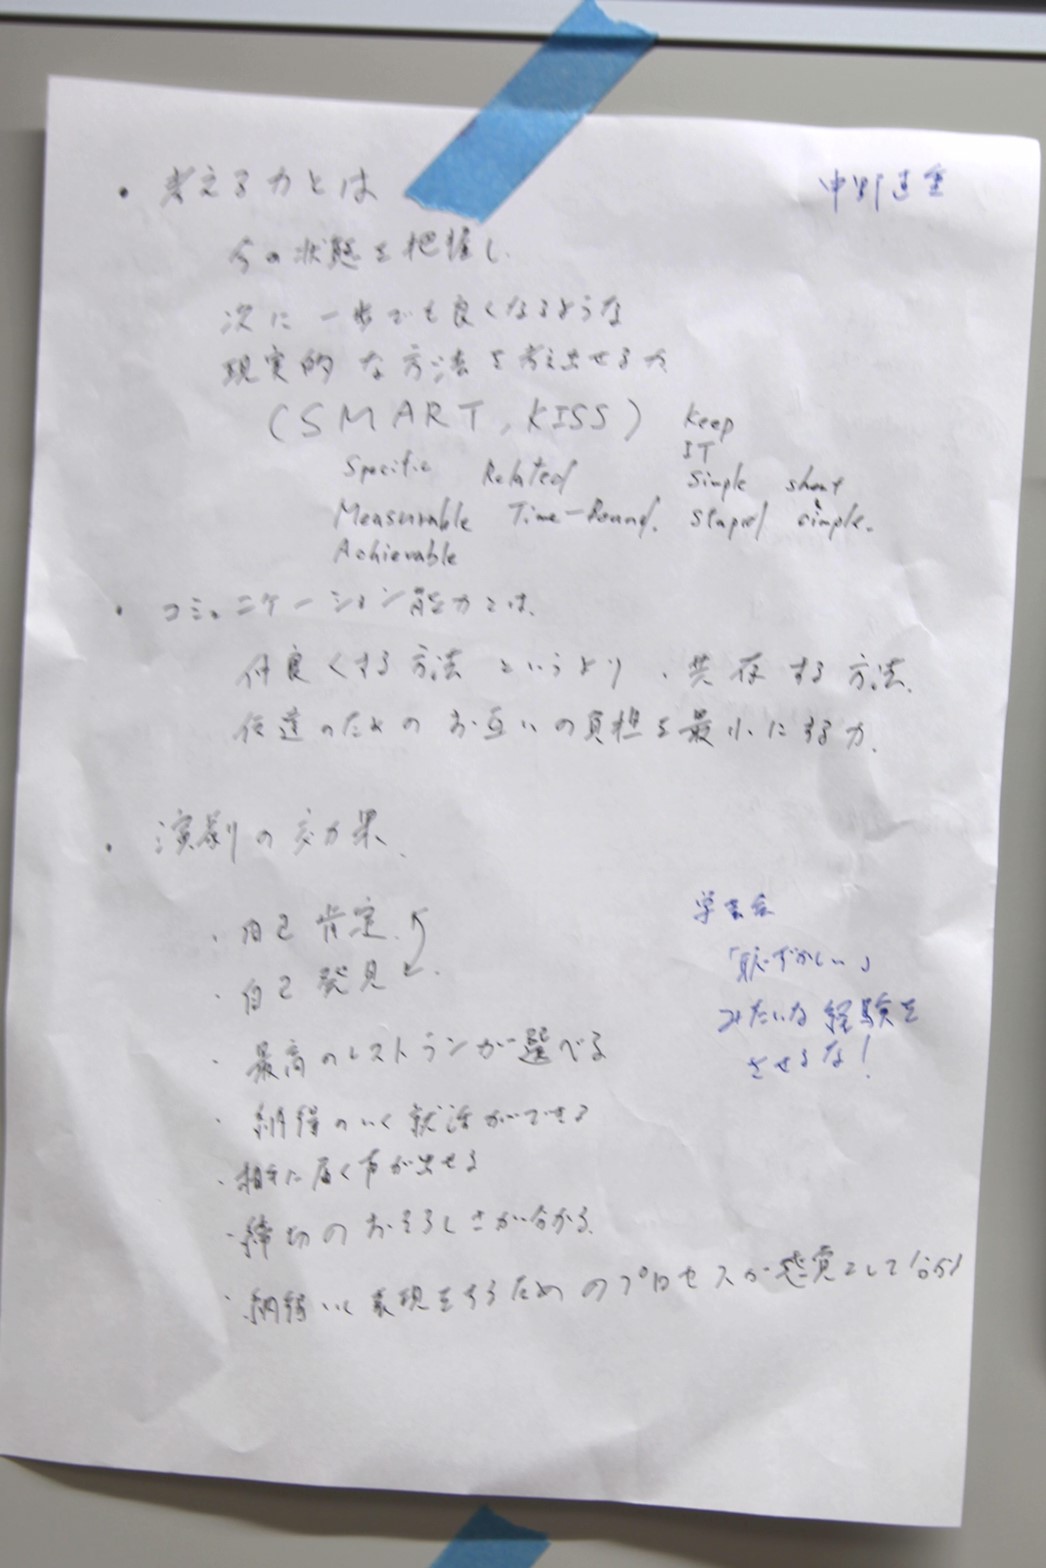 ・考える力とは
今の状態を把握し、
次に一歩でも良くなるような
現実的な方法を考え出せる力
(SMART, KISS)
Specific
Measurable
Achievable
Related
Time-Bound.
Keep
IT
Simple
Stupid
short
simple.
・コミュニケーション能力とは、
仲良くする方法というより、共存する方法、
伝達のためのお互いの負担を最小にする力、
・演劇の効果、
・自己肯定、
・自己発見
・最高のレストランが選べる
・納得のいく就活ができる
・相手に届く声が出せる
・締切のおそろしさが分かる、
・納得いく表現をするためのプロセスが感覚として
学芸会
「恥ずかしい」
みたいな経験を
させるな!